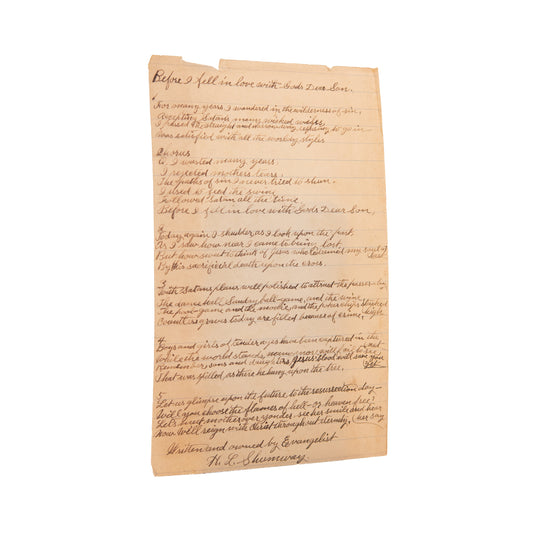 Before I fell in love with Gods Dear Son.
1
For many years I wandered in the wilderness of sin,
Accepting Satans many wicked
I the straight and narrow way, refusing to go in
Was satisfied with all the worldly styles
Chorus
O, I wasted many years,
I rejected mothers tears,
The paths of sin I never tried to shun.
I used to feed the swine
Followed Satan all the time,
Before I fell in love with Gods Dear Son,
2
Today again I shudder as I look upon the past,
As I saw how near I came to being lost,
But how sweet to think of Jesus who my soul at
last
By this sacrificial death upon the cross.
3
With Satans plans well polished to attract the passer-by
The dance hall Sunday ball-game, and the wine,
The pool-game and the movie, and the
Countless graves today are filled because of crime,
4
Boys and girls of tender ages have been captured in the
While the world stands, many more will
sons and daughters, Jesus' blood will
That was spilled as there he hung upon the tree,
5
Let us glimpse upon the future to the resurrection day—
Will you choose the flames of hell—or heaven free?
Let's hunt mother over yonder, see her smile and hear
her say
How we'll reign with Christ throughout eternity,
Written and owned by Evangelist
H. L. Shumway